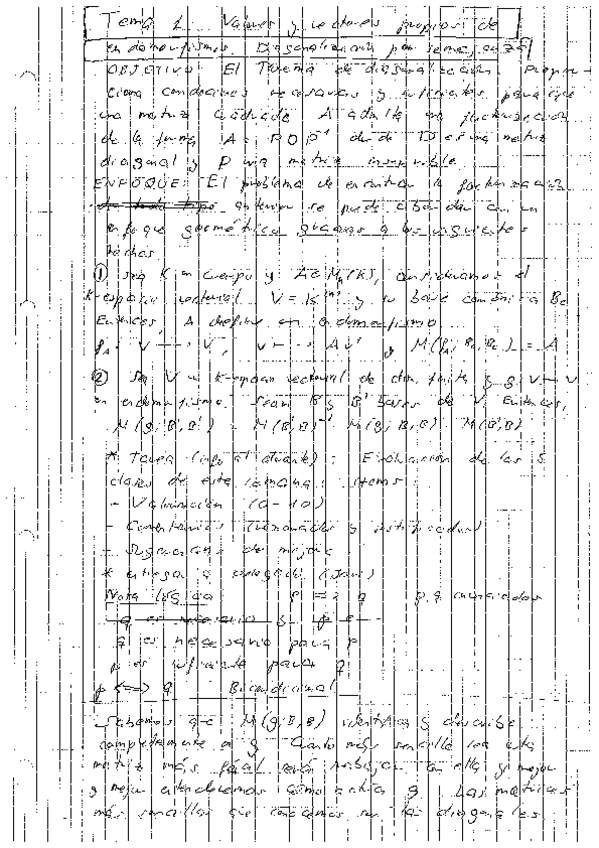 Tema 1. Valores y vectores propios de
endomorfismos. Diagonalización por semejanza
OBJETIVO: El Teorema de diagonalización. Propor-
ciona condiciones necesarias y suficientes para que
una matriz cuadrada A admita una factorización
de la forma A = P D P⁻¹ donde D es una matriz
diagonal y P una matriz invertible.
ENFOQUE: El problema de encontrar la factorización
anterior se puede abordar con un
enfoque geométrico gracias a los siguientes
hechos
① Sea K un cuerpo y A ∈ Mₙ(K), consideramos el
K-espacio vectorial V = Kⁿ y su base canónica Bc
Entonces, A define un endomorfismo
f_A: V → V, v → Av y M(f_A; Bc, Bc) = A
② Sea V un K-espacio vectorial de dim. finita y g: V → V
un endomorfismo. Sean B y B' bases de V. Entonces,
M(g; B', B') = M(B', B)⁻¹ M(g; B, B) M(B', B)
* Tarea : Evaluación de las 5
clases de esta semana: items:
- Valoración (0-10)
- Comentarios (razonados y justificados)
- Sugerencias de mejora
* entregar a delegado
Nota lógica p => q p, q enunciados
q es necesario
q es necesario para p
p es suficiente para q
p <=> q Bicondicional
Sabemos que M(g; B, B) identifica y describe
completamente a g. Cuanto más sencilla sea esta
matriz más fácil será trabajar con ella y mejor
y mejor entenderemos cómo actúa g. Las matrices
más sencillas que conocemos son las diagonales